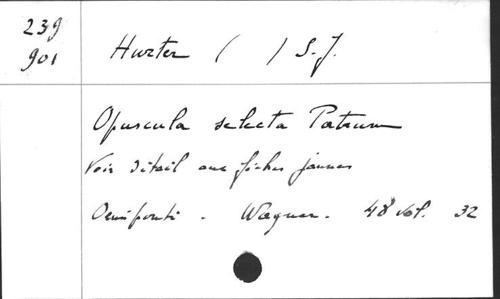 239
901
Hurter ( ) S.J.
Opuscula selecta Patrum
Voir détail aux fiches jaunes
Oeniponti - Wagner. 48 vol. 32